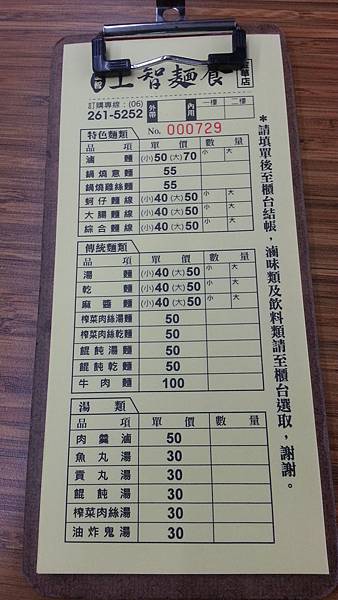 上智麵食
金華店
訂購專線:(06)
261-5252
外帶
內用
一樓 二樓
No. 000729
特色麵類
品項 單價 數量
滷麵 (小)50(大)70 小 大
鍋燒意麵 55
鍋燒雞絲麵 55
蚵仔麵線 (小)40(大)50 小 大
大腸麵線 (小)40(大)50 小 大
綜合麵線 (小)40(大)50 小 大
傳統麵類
品項 單價 數量
湯麵 (小)40(大)50 小 大
乾麵 (小)40(大)50 小 大
麻醬麵 (小)40(大)50 小 大
榨菜肉絲湯麵 50
榨菜肉絲乾麵 50
餛飩湯麵 50
餛飩乾麵 50
牛肉麵 100
湯類
品項 單價 數量
肉羹滷 50
魚丸湯 30
貢丸湯 30
餛飩湯 30
榨菜肉絲湯 30
油炸鬼湯 30
*請填單後至櫃台結帳,滷味類及飲料類請至櫃台選取,謝謝。